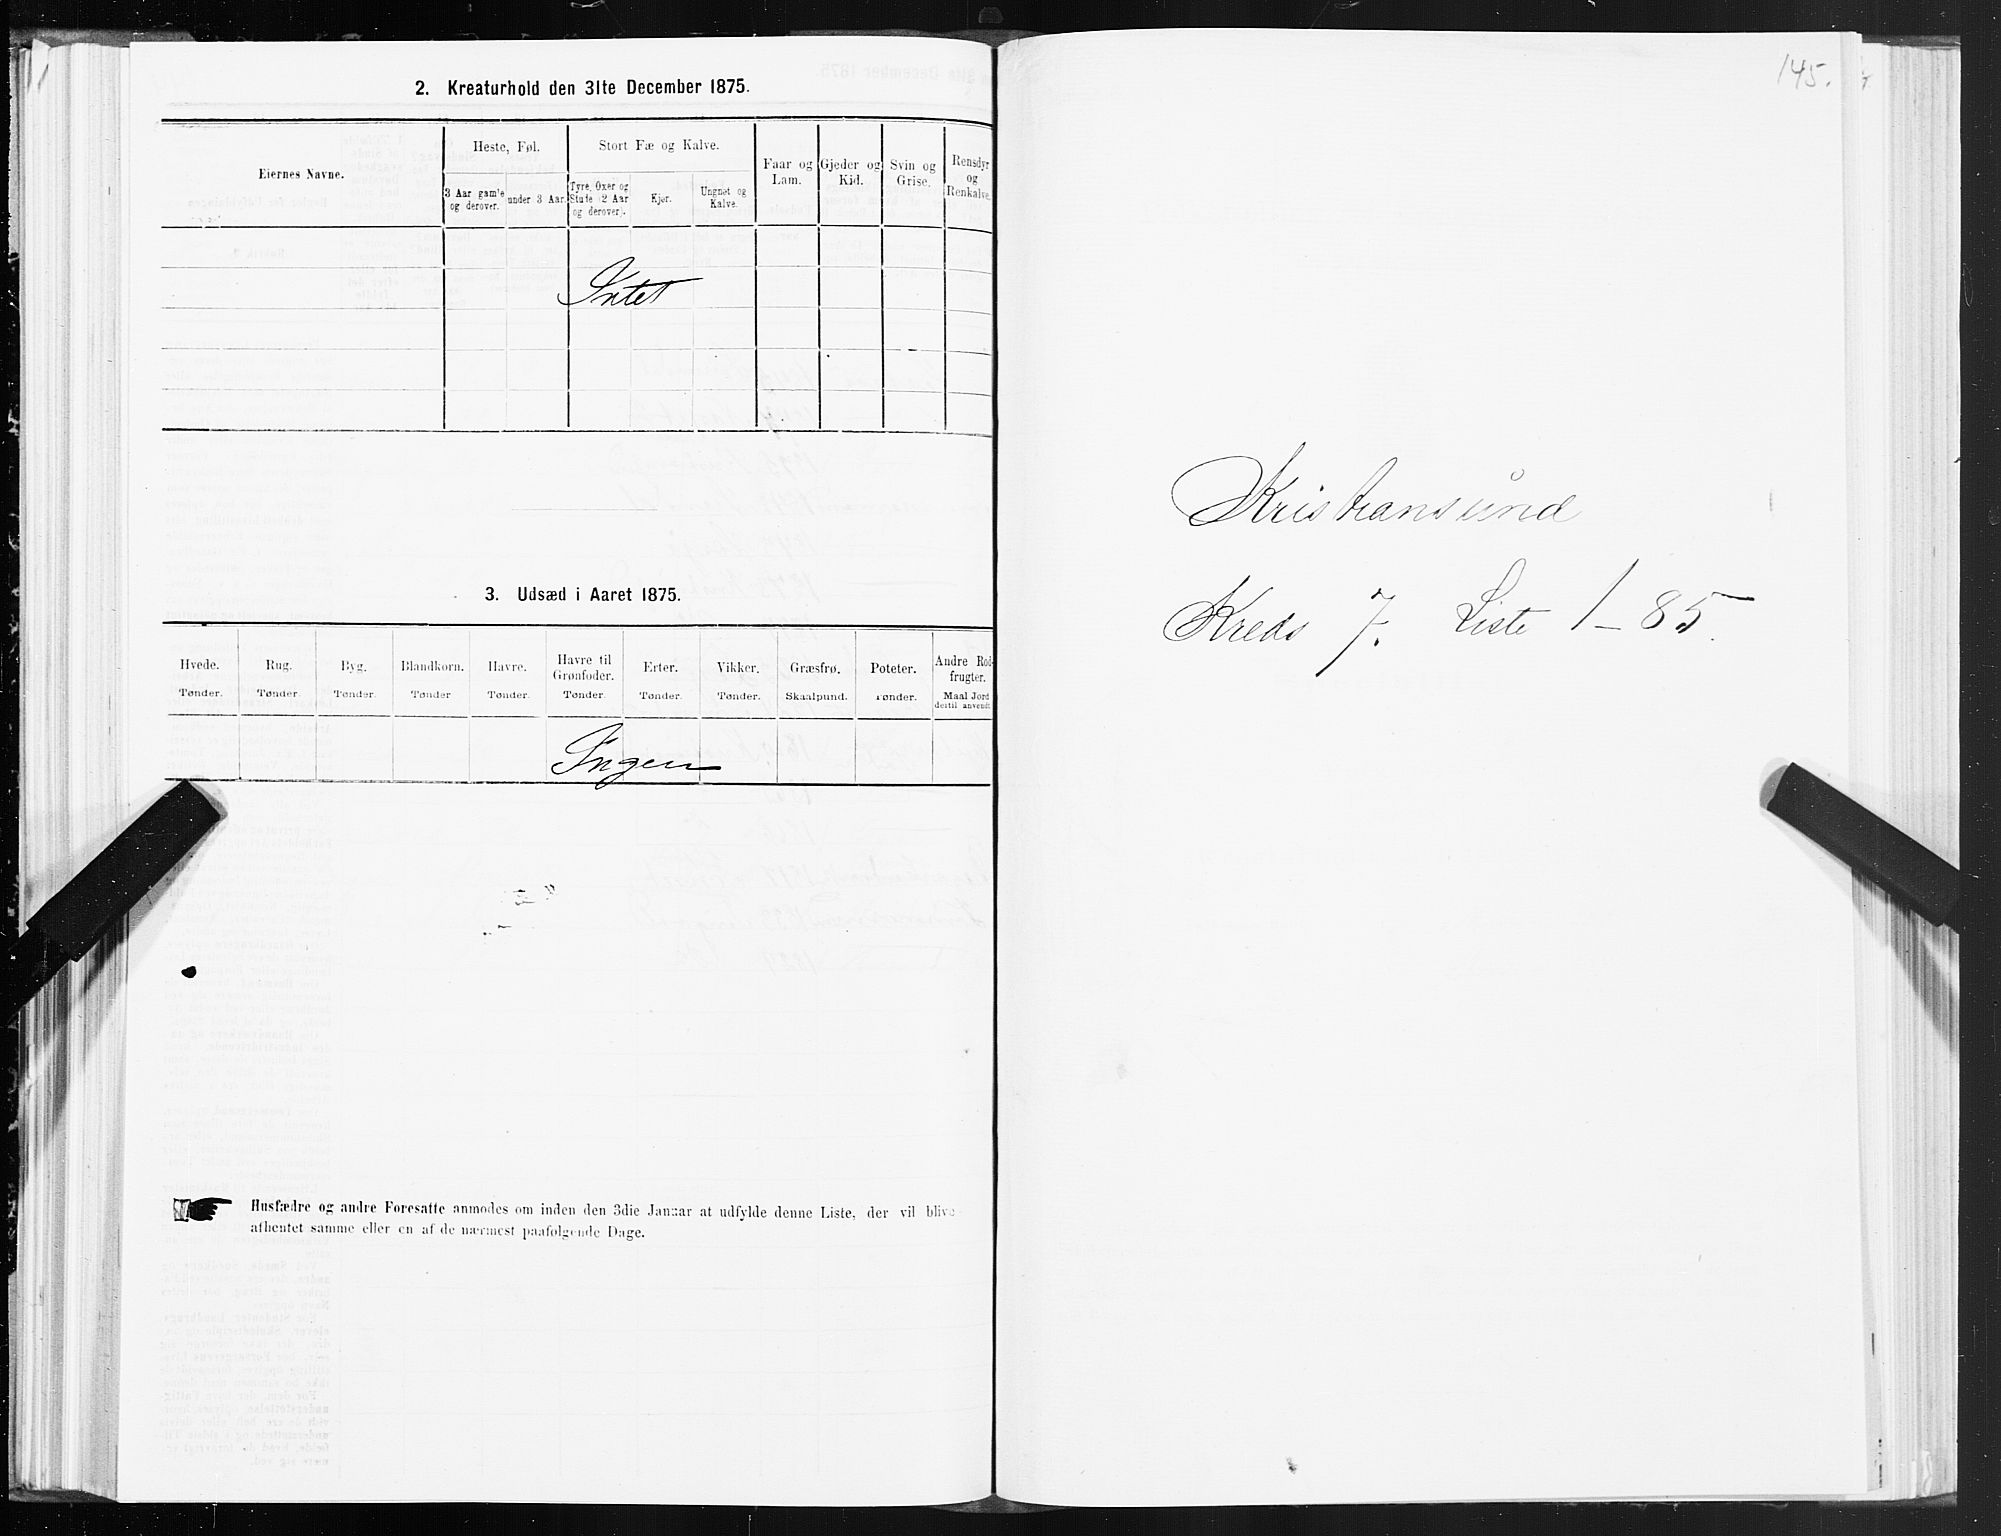 2. Kreaturhold den 31te December 1875.
Eiernes Navne.
Heste, Føl.
Stort Fæ og Kalve.
Faar og Lam.
Gjeder og Kid.
Svin og Grise.
Rensdyr og Renkalve.
3 Aar gamle og derover.
under 3 Aar.
Tyre, Oxer og Stude (2 Aar og derover).
Kjør.
Ungnøt og Kalve.
Intet
3. Udsæd i Aaret 1875.
Hvede. Rug. Byg. Blandkorn. Havre. Havre til Grønfoder. Erter. Vikker. Græsfrø. Poteter. Andre Rodfrugter.
Tønder. Tønder. Tønder. Tønder Tønder. Tønder. Tønder. Tønder. Skaalpund. Tønder. Maal Jord dertil anvendt
Ingen
Husfædre og andre Foresatte anmodes om inden den 3die Januar at udfylde denne Liste, der vil blive
afhentet samme eller en af de nærmest paafølgende Dage.
145.
Kristiansund
Kreds 7. Liste 1-85.